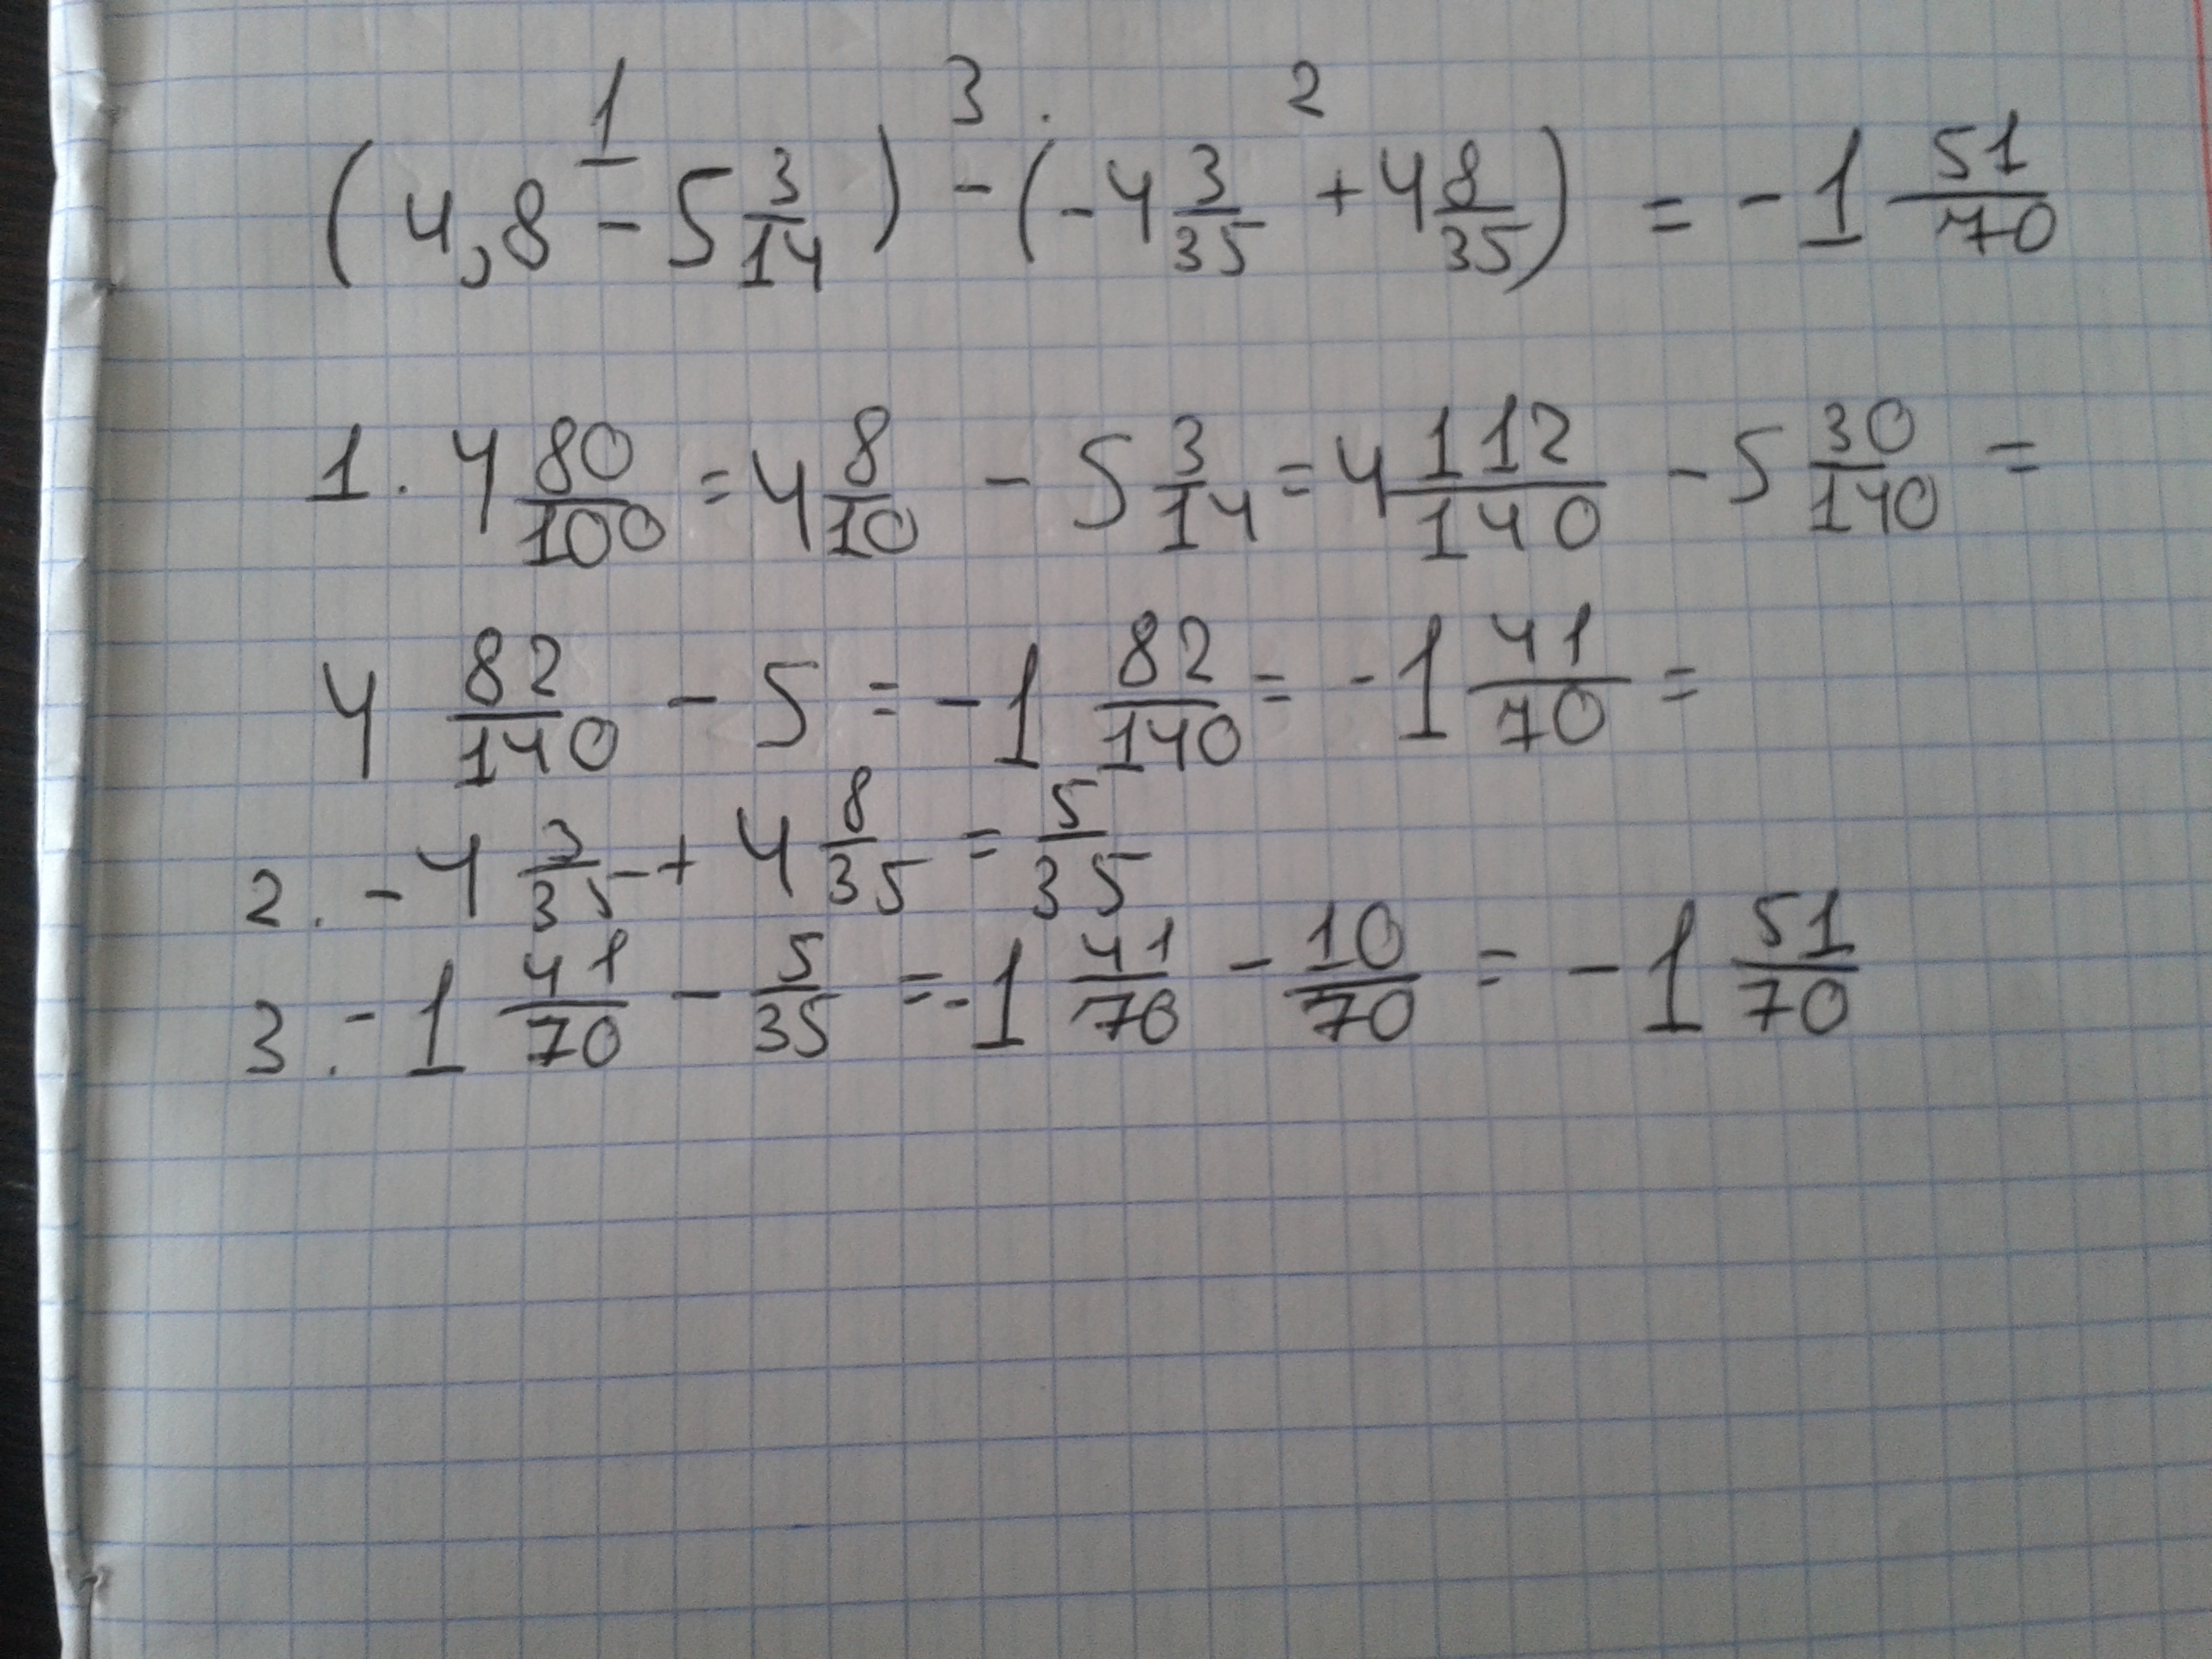 1 3. 2
(4,8 - 5 3/14) - (-4 3/35 + 4 8/35) = -1 51/70
1. 4 80/100 = 4 8/10 - 5 3/14 = 4 112/140 - 5 30/140 =
4 82/140 - 5 = -1 82/140 = -1 41/70 =
2. -4 3/35 + 4 8/35 = 5/35
3. -1 41/70 - 5/35 = -1 41/70 - 10/70 = -1 51/70